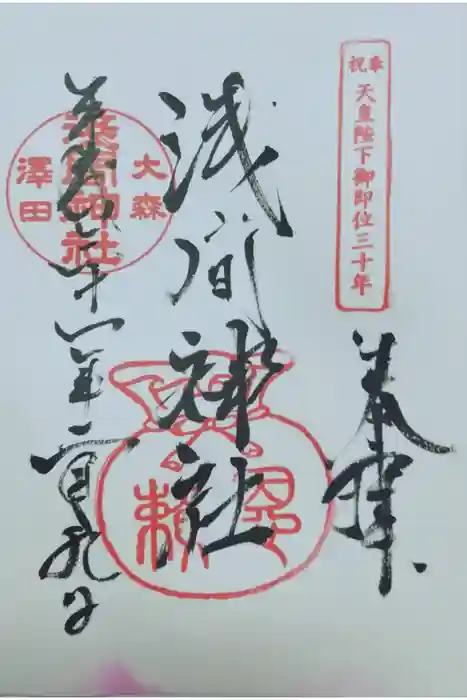 奉祝
天皇陛下御即位三十年
奉拝
浅間神社
大森
浅間神社
澤田
平成三十一年